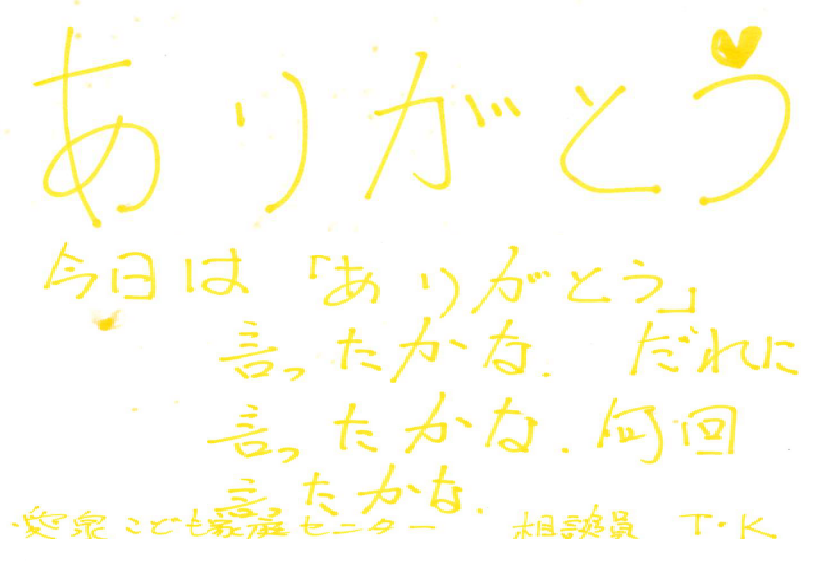 ありがとう
今日は「ありがとう」
言ったかな. だれに
言ったかな. 何回
言ったかな.
こども家庭センター 相談員 T・K